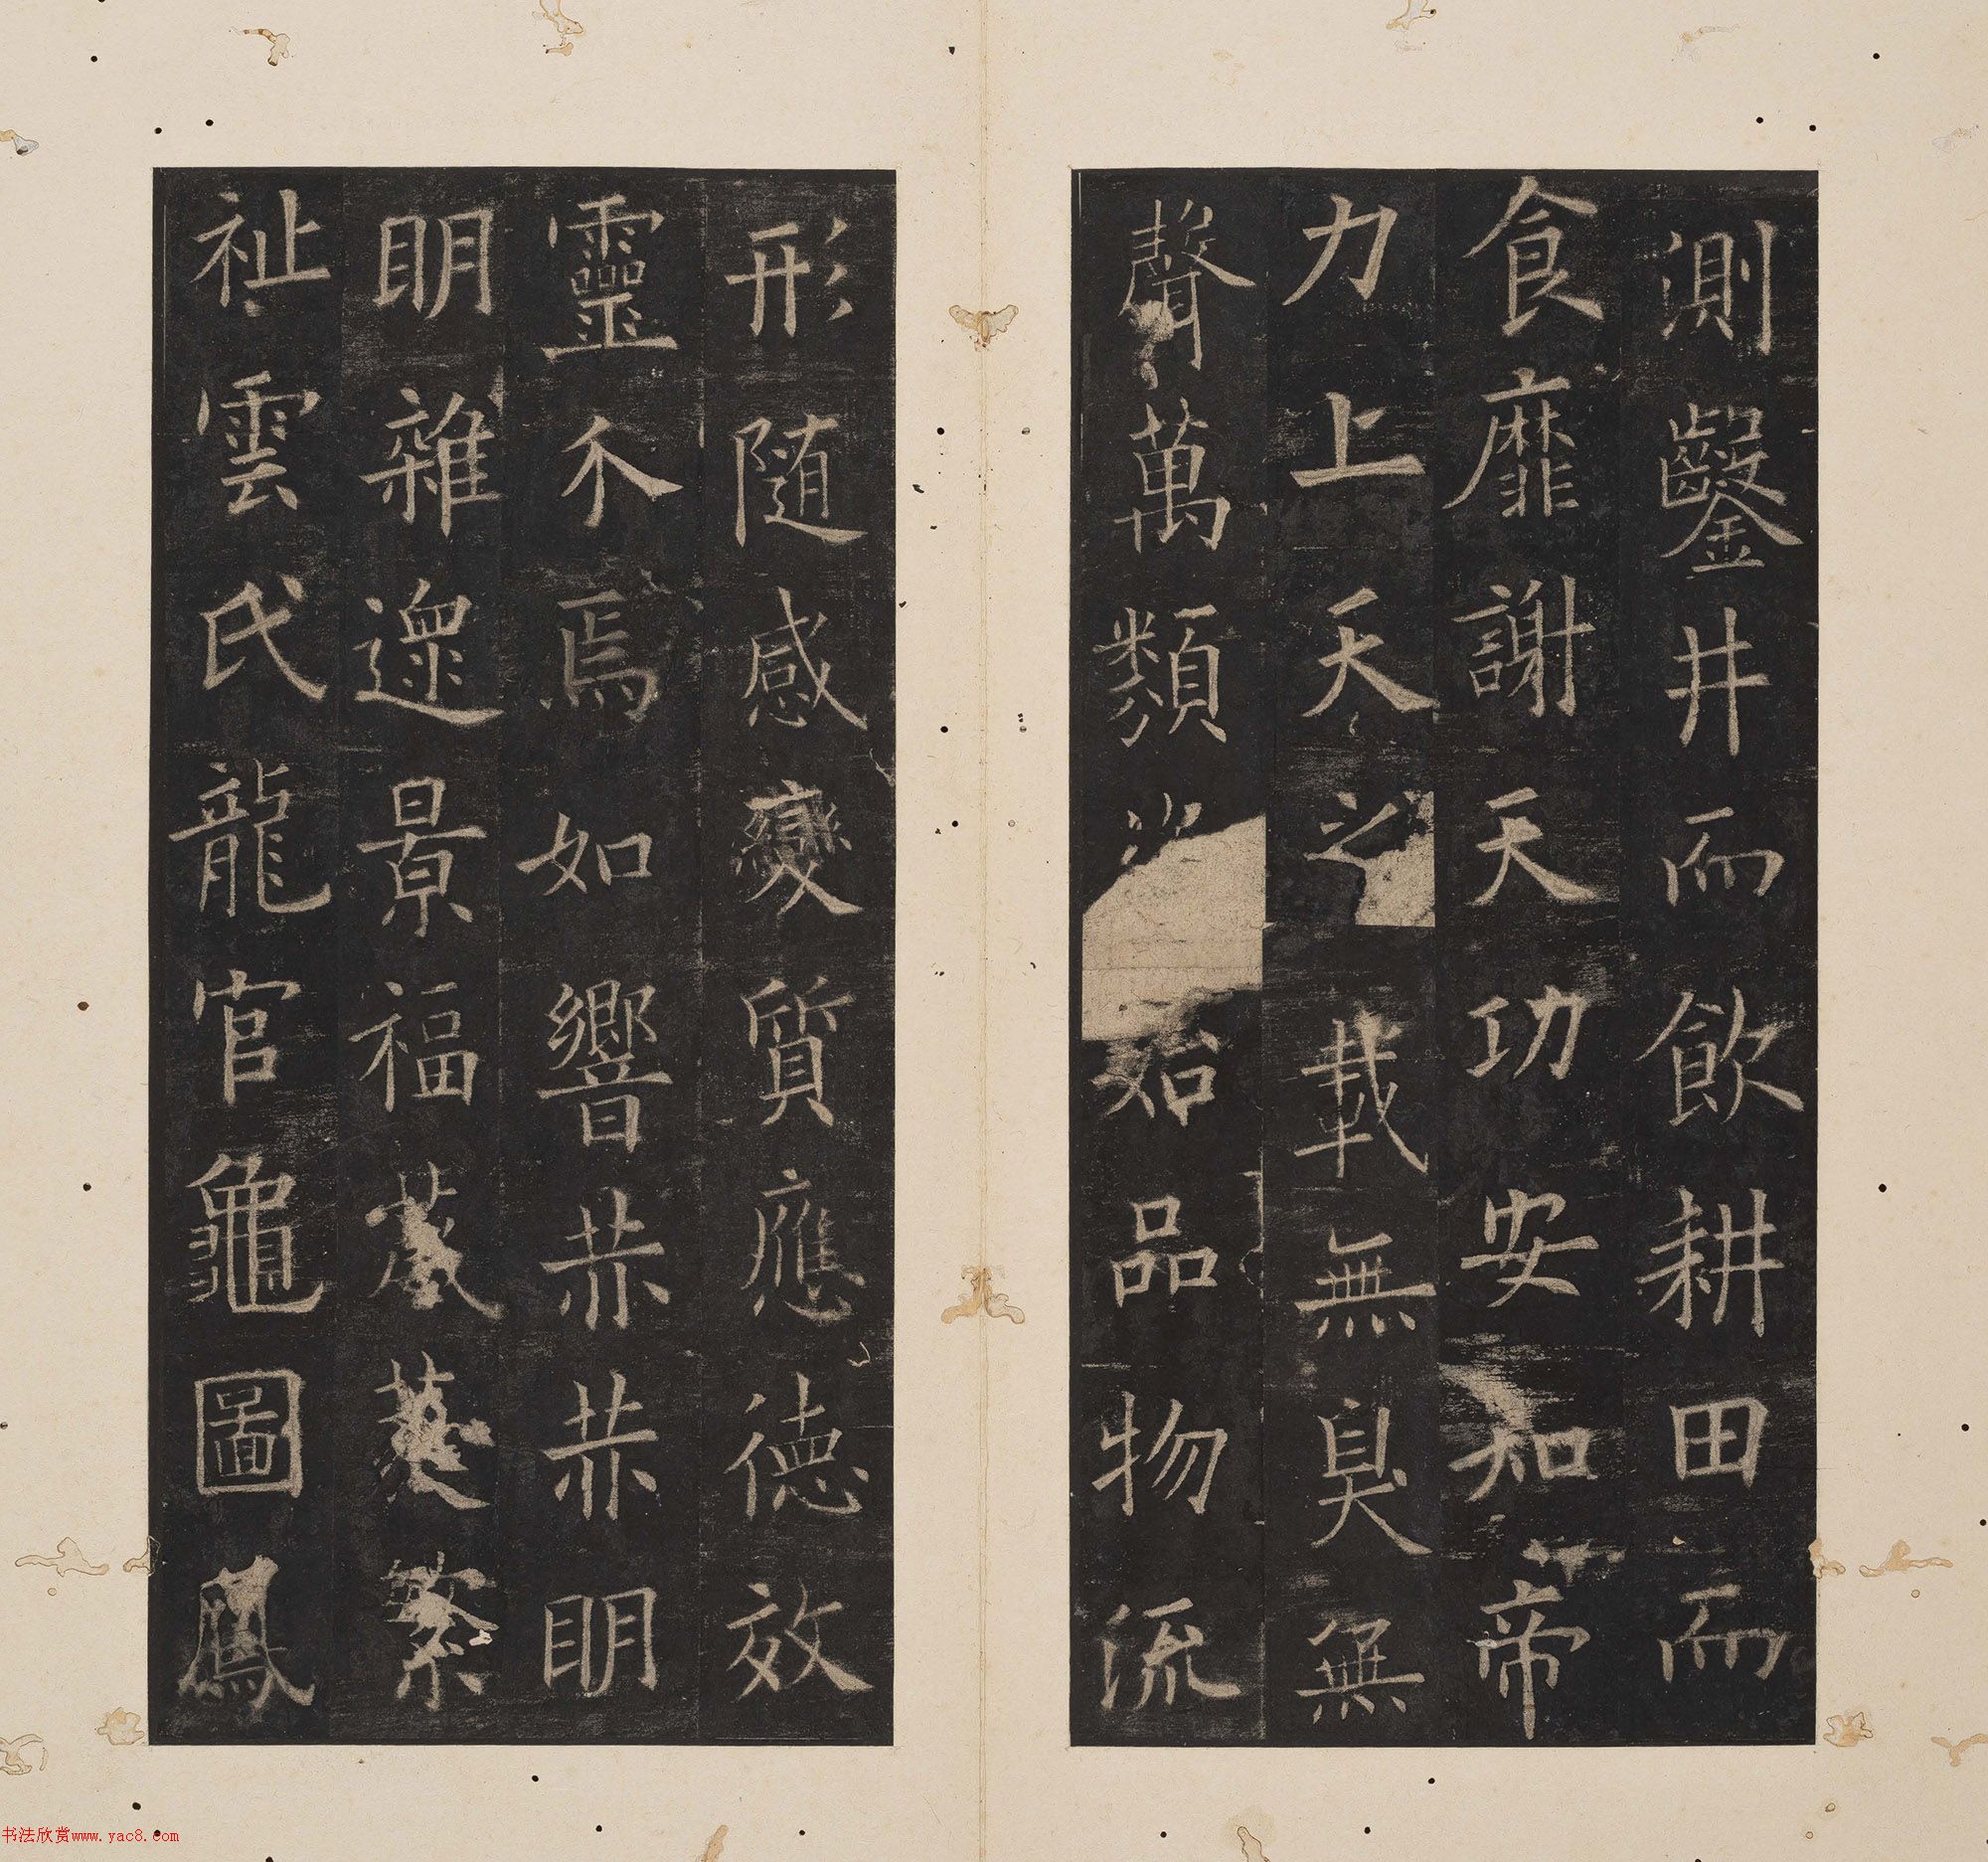 測鑿井而飲耕田而
食靡謝天功安知帝
力上天之載無臭無
聲萬類始品物流
形隨感變質應德效
靈介焉如響赫赫明
明雜遝景福葳蕤繁
祉雲氏龍官龜圖鳳
书法欣赏www.yac8.com